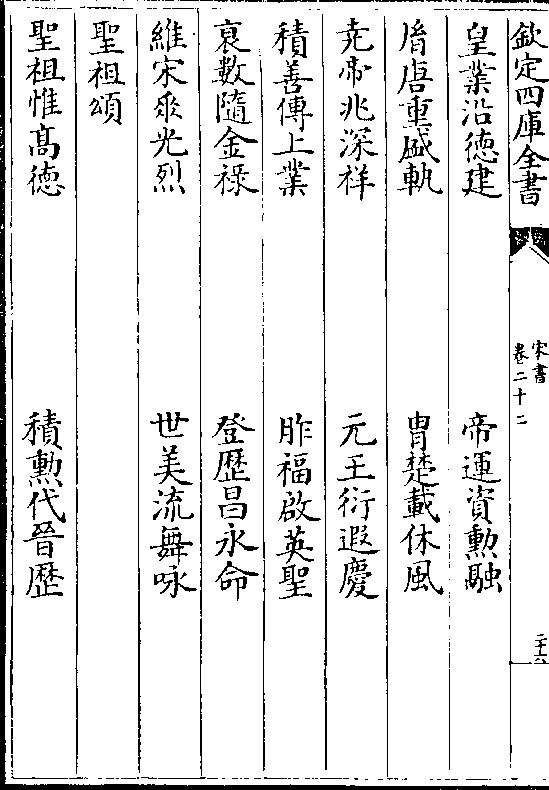 欽定四庫全書
宋書
卷二十二
二十六
皇業沿德建 帝運資勲融
𦙍唐重盛軌 胄楚載休風
尭帝兆深祥 元王衍遐慶
積善傳上業 胙福啟英聖
衰數隨金祿 登歴昌永命
維宋𠂹光烈 世美流舞咏
聖祖頌
聖祖惟髙德 積勲代晉歴